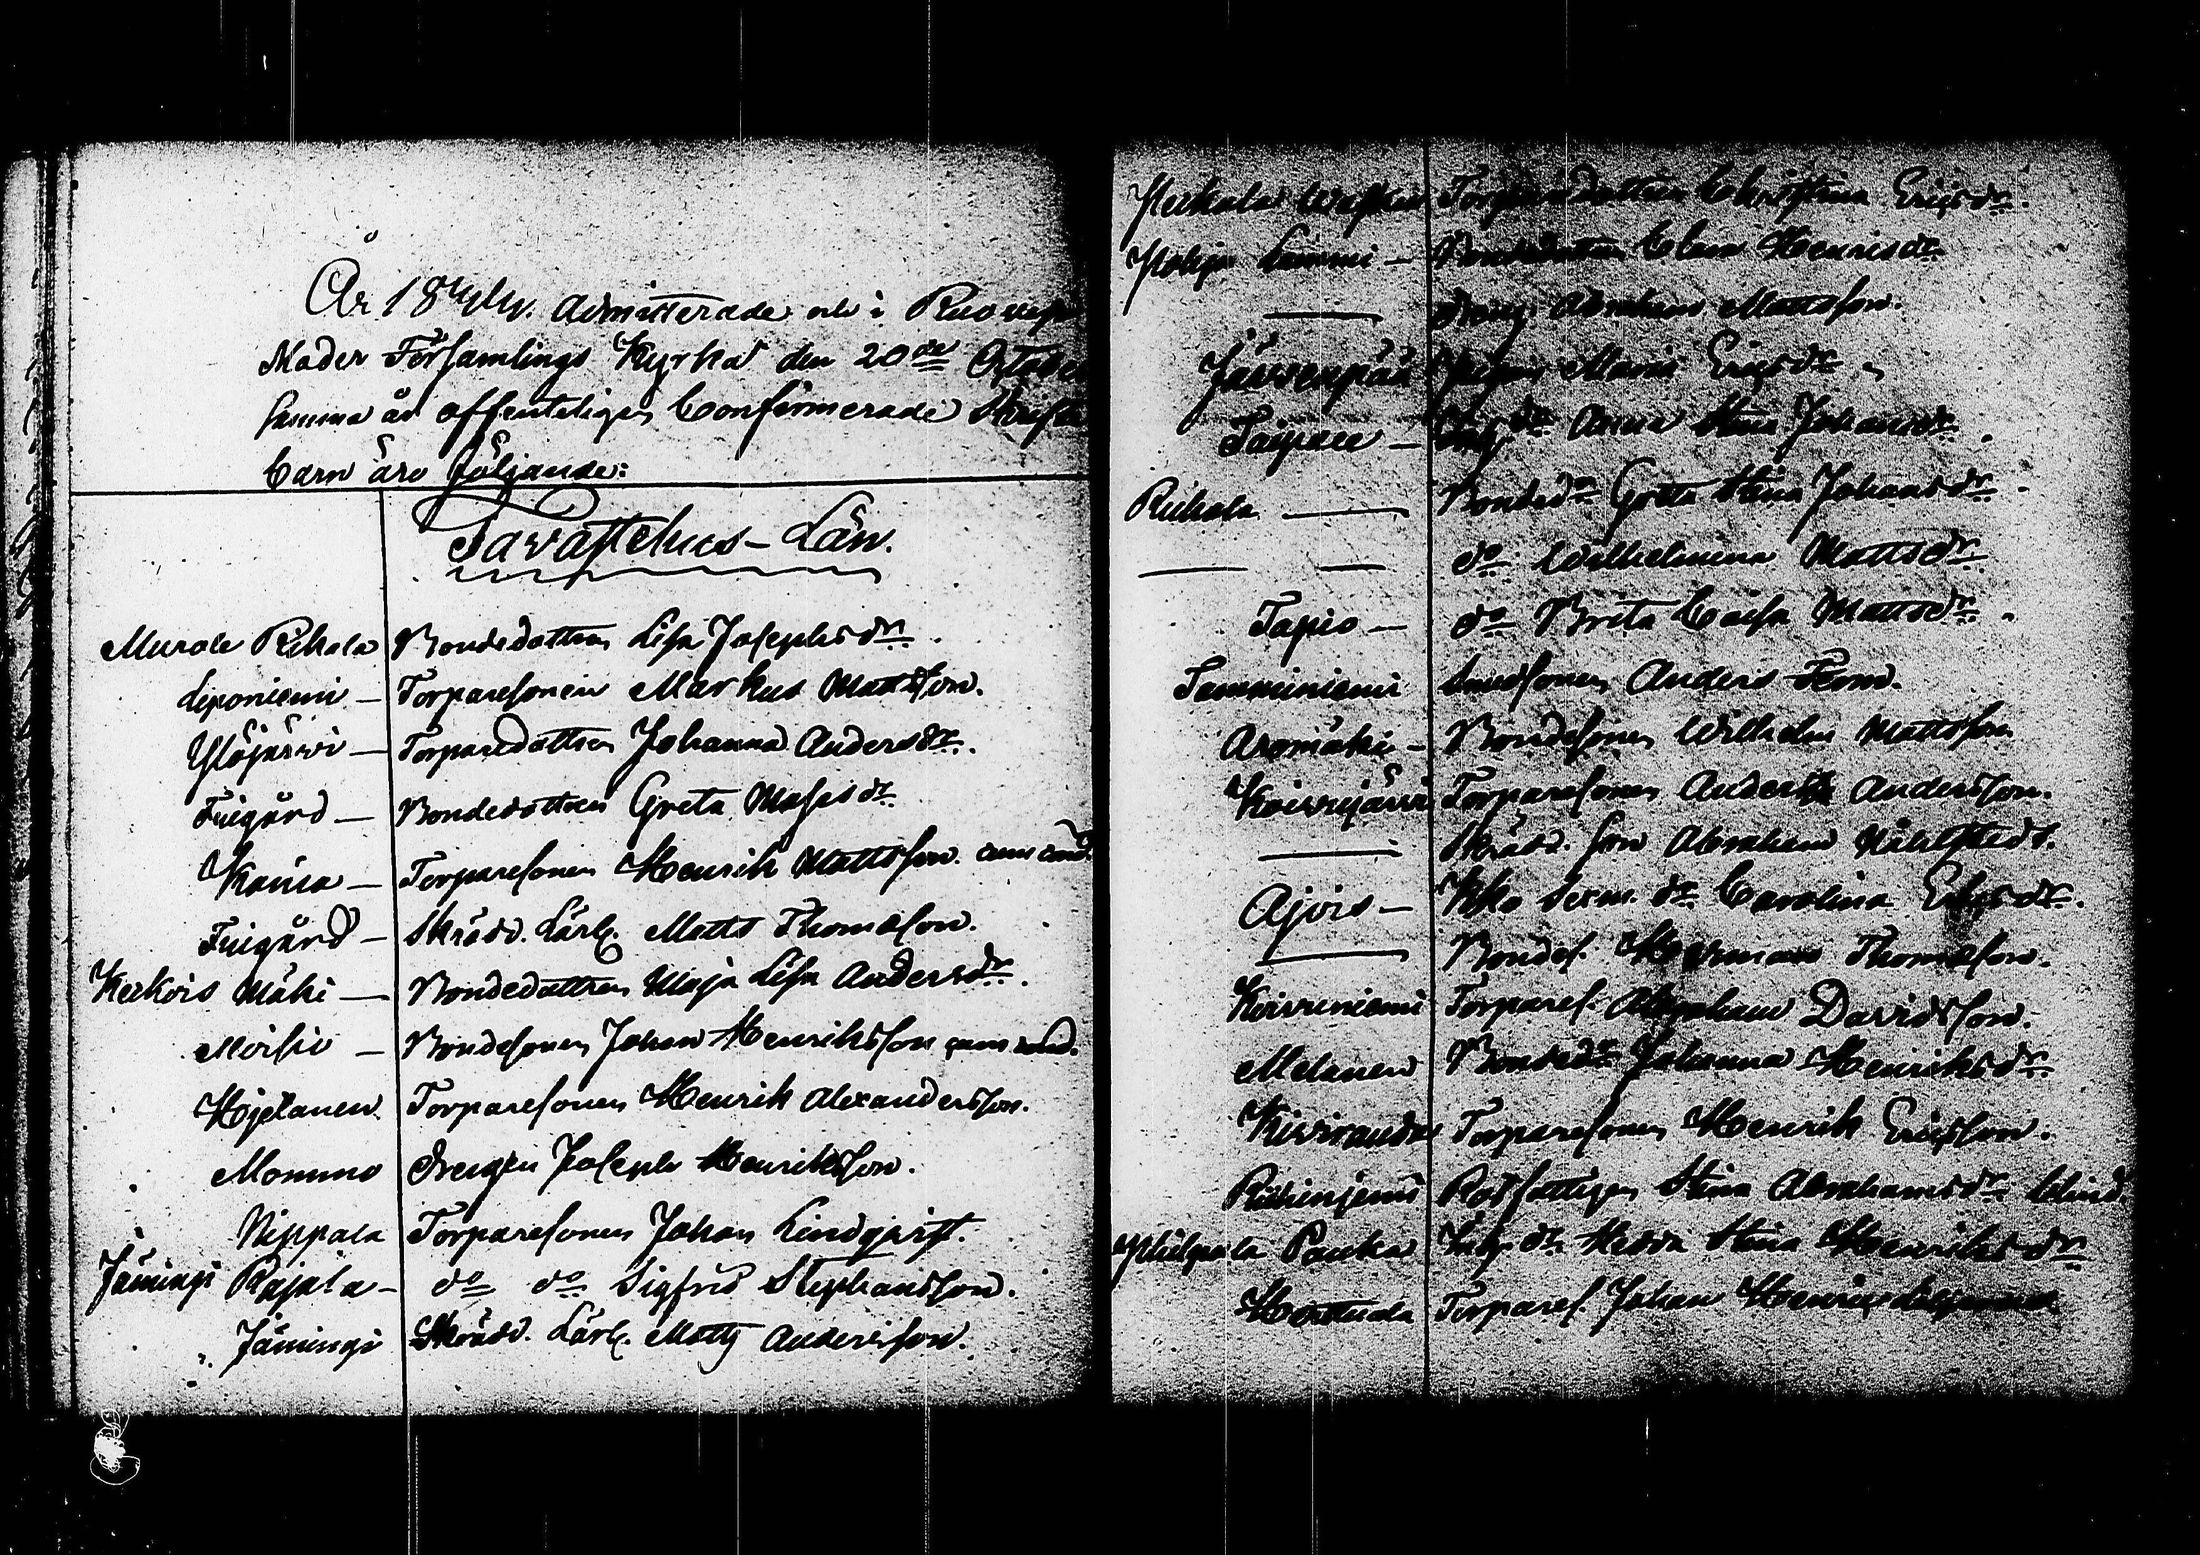 År 1844. Admitterade och i Ruovesi
Moder Församlings Kyrka den 20de October
samma år offenteligen Confirmerade Skrifte
barn äro följande:
Tavastehus-Län.
Murole Pihala Bondedottren Lisa Josephsdr.
Leponiemi – Torparesonen Markus Mattsson.
Ylöjärvi – Torparedottren Johanna Andersdr.
Frigård – Bondedottren Greta Matsdr
Kania – Torparesonen Henrik Mattsson. cum cond.
Frigård – Skrädd. Lärl. Matts Thomasson.
Kekois Mäki – Bondedottren Maja Lisa Andersdr.
Moisio – Bondesonen Johan Henriksson cum cond.
Hjelanen Torparesonen Henrik Alexandersson.
Mommo Drengen Joseph Henriksson.
Nippala Torparesonen Johan Lindqvist.
Jäminngi Rajala – do do Sigfrid Stephansson.
" Jäminngi Skrädd. Lärl. Matts Andersson.
Torparedottren Christina Ericsdr.
Pohja Lammi – Bondedottren Henricsdr
— Dreng. Abraham Mattsson.
Järvenpää Pigan Maria Ericsdr
Taipale – Inh. dr Anna Stina Johansdr.
Ruhala — Bondedr Greta Stina Johansdr.
— — do Wilhelmina Mattsdr.
Tapio – do Brita Caisa Mattsdr.
Tamminiemi Smedsonen Anders Ferm.
Aromäki – Bondesonen Wilhelm Mattsson
Koivujärvi Torparesonen Anders Andersson.
— Skrädd. Son Abraham Wåhlstedt.
Ajois – Carolina Ericsdr.
— Bondes. Herman Thomasson.
Koivuniemi Torpares. Abraham Davidsson.
Melanen Bondedr Johanna Henriksdr.
Kiviranda Torparesonen Henrik Ericsson.
Rotfattigen Stina Abrahamsdr blind.
Pauka Inh. dr Hedda Stina Henriksdr
Honttula Torpares. Johan